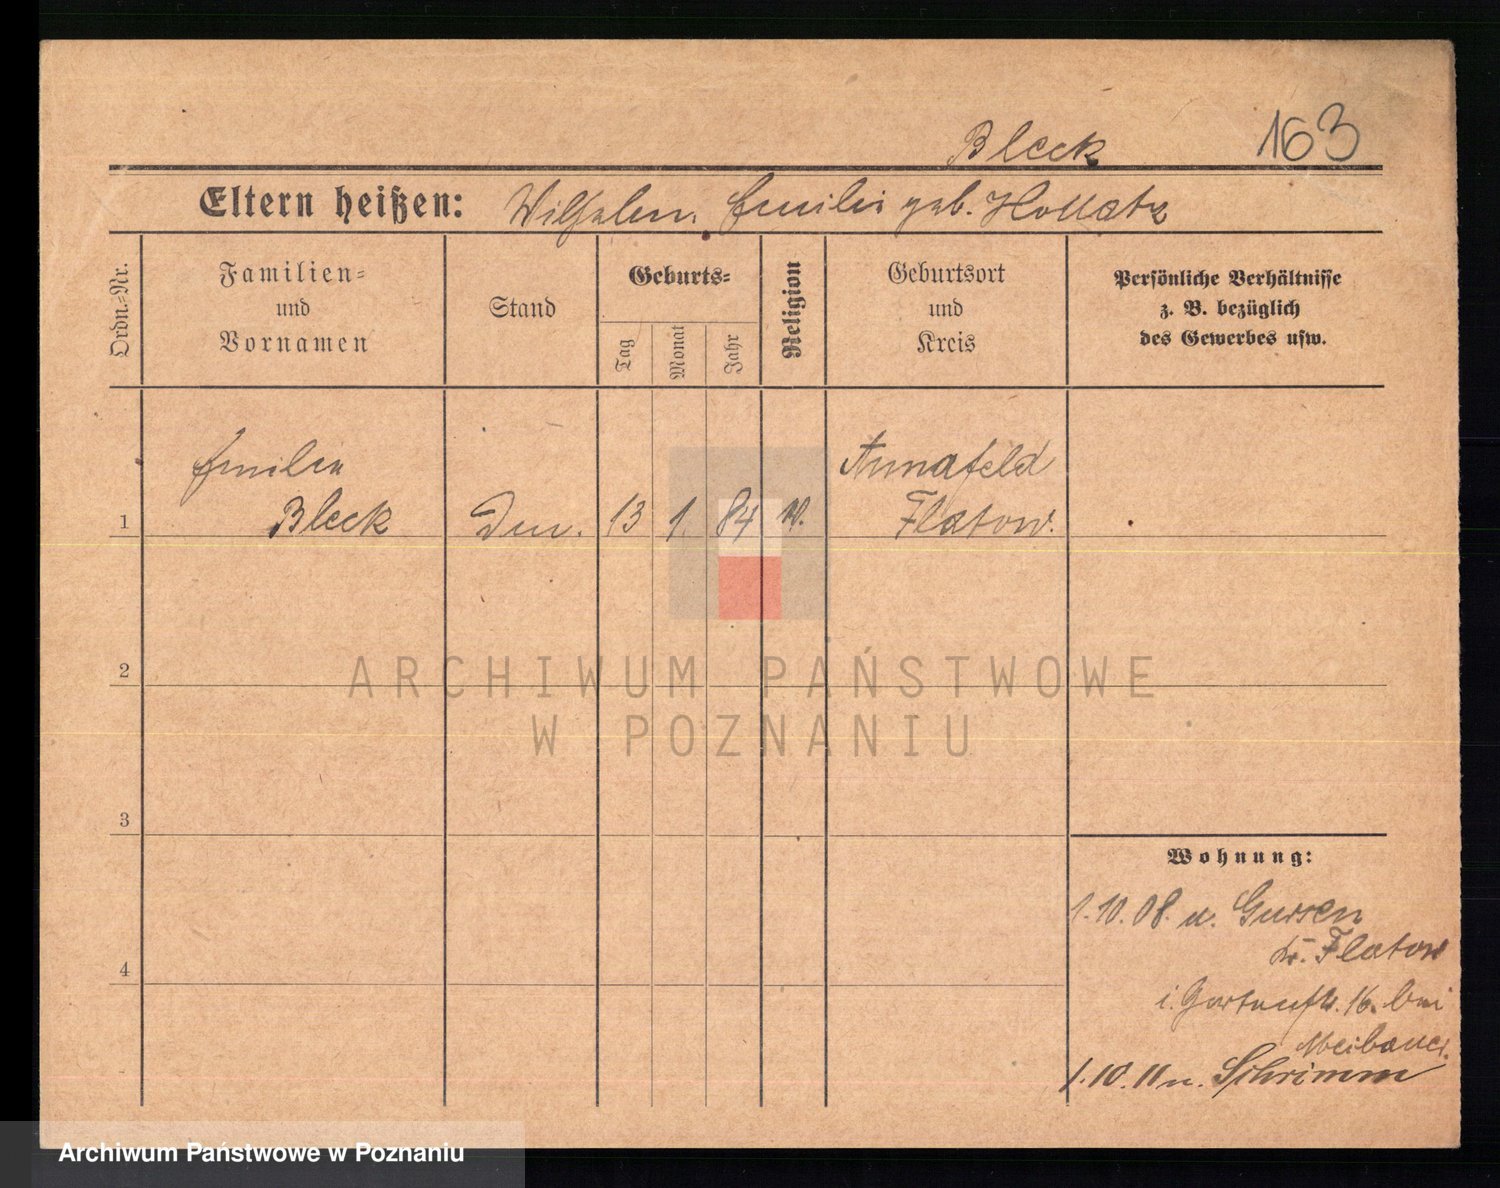 Bleck
163
Eltern heißen: Wilhelm. Emilie geb. Hollatz
Ordn.=Nr.
Familien=
und
Vornamen
Stand
Geburts=
Tag
Monat
Jahr
Religion
Geburtsort
und
Kreis
Persönliche Verhältnisse
z. B. bezüglich
des Gewerbes usw.
Emilie
Bleck
Annafeld
1
13 1. 84
Flatow.
2
ARCHIWUM PAŃSTWOWE
W POZNANIU
3
Wohnung:
1.10.08. Gursen
Kr. Flatow
4
i. Gartenstr. 16. bei
1.10.11 n. Schrimm
Archiwum Państwowe w Poznaniu